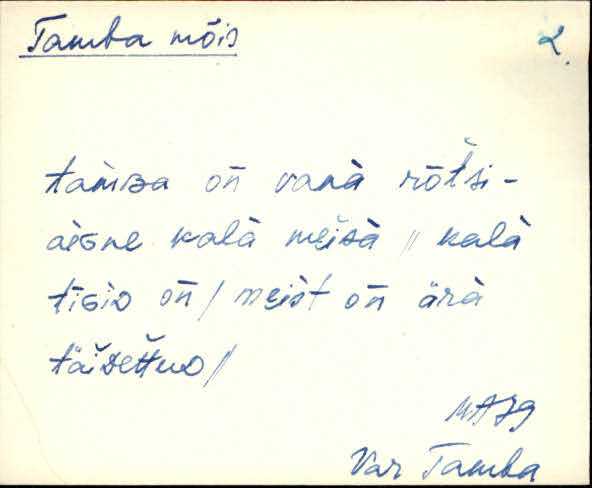 Tamba mõis
2.
tàmʙa on̄ vanà rõt̆si-
aɪɢne kalà meisà // kalà
tīɢiᴅ on̄ / meist on̄ ärà
täiᴅettuᴅ //
Var Tamba